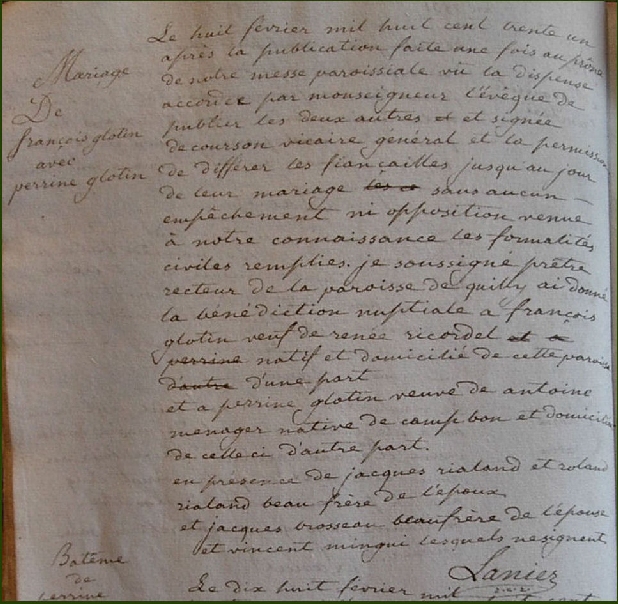 Mariage
De
françois glotin
avec
perrine glotin
Le huit février mil huit cent trente un
après la publication faite une fois au prône
de notre messe paroissiale vû la dispense
accordée par monseigneur l'évêque de
publier les deux autres et et signée
de courson vicaire général et la permission
de différer les fiançailles jusqu'au jour
de leur mariage sans aucun
empêchement ni opposition venue
à notre connaissance les formalités
civiles remplies. je soussigné prêtre
recteur de la paroisse de quilly ai donné
la bénédiction nuptiale a françois
glotin veuf de renée ricordel et a
perrine natif et domicilié de cette paroisse
d'autre d'une part
et a perrine glotin veuve de antoine
menager native de campbon et domiciliée
de celle ci d'autre part.
en présence de jacques rialand et roland
rialand beau frère de l'époux
et jacques brosseau beaufrère de l'épouse
et vincent mingui lesquels ne signent
Lanier
Batême
de
perrine
Le dix huit février mil huit cent